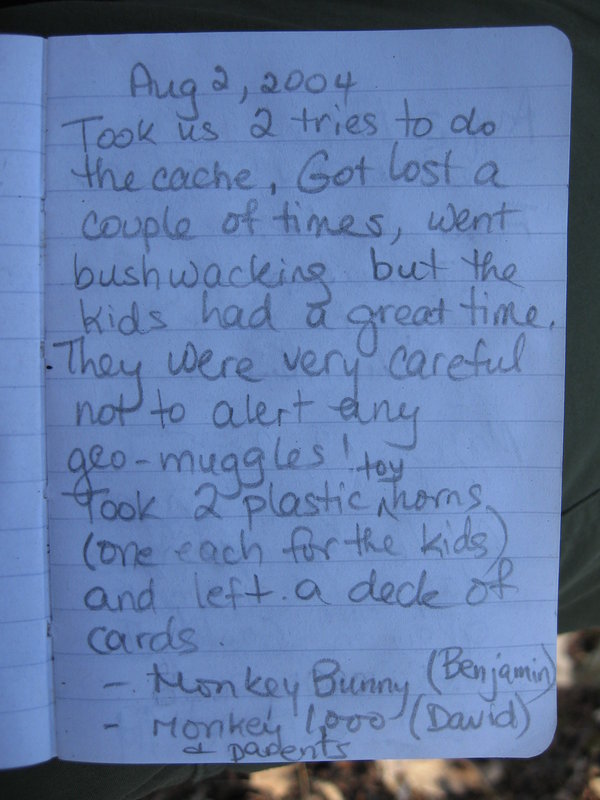 Aug 2, 2004
Took us 2 tries to do
the cache, Got lost a
couple of times, went
bushwacking but the
kids had a great time.
They were very careful
not to alert any
geo-muggles!
Took 2 plastic toy horns
(one each for the kids)
and left a deck of
cards.
- Monkey Bunny (Benjamin)
- Monkey 1,000 (David)
& parents